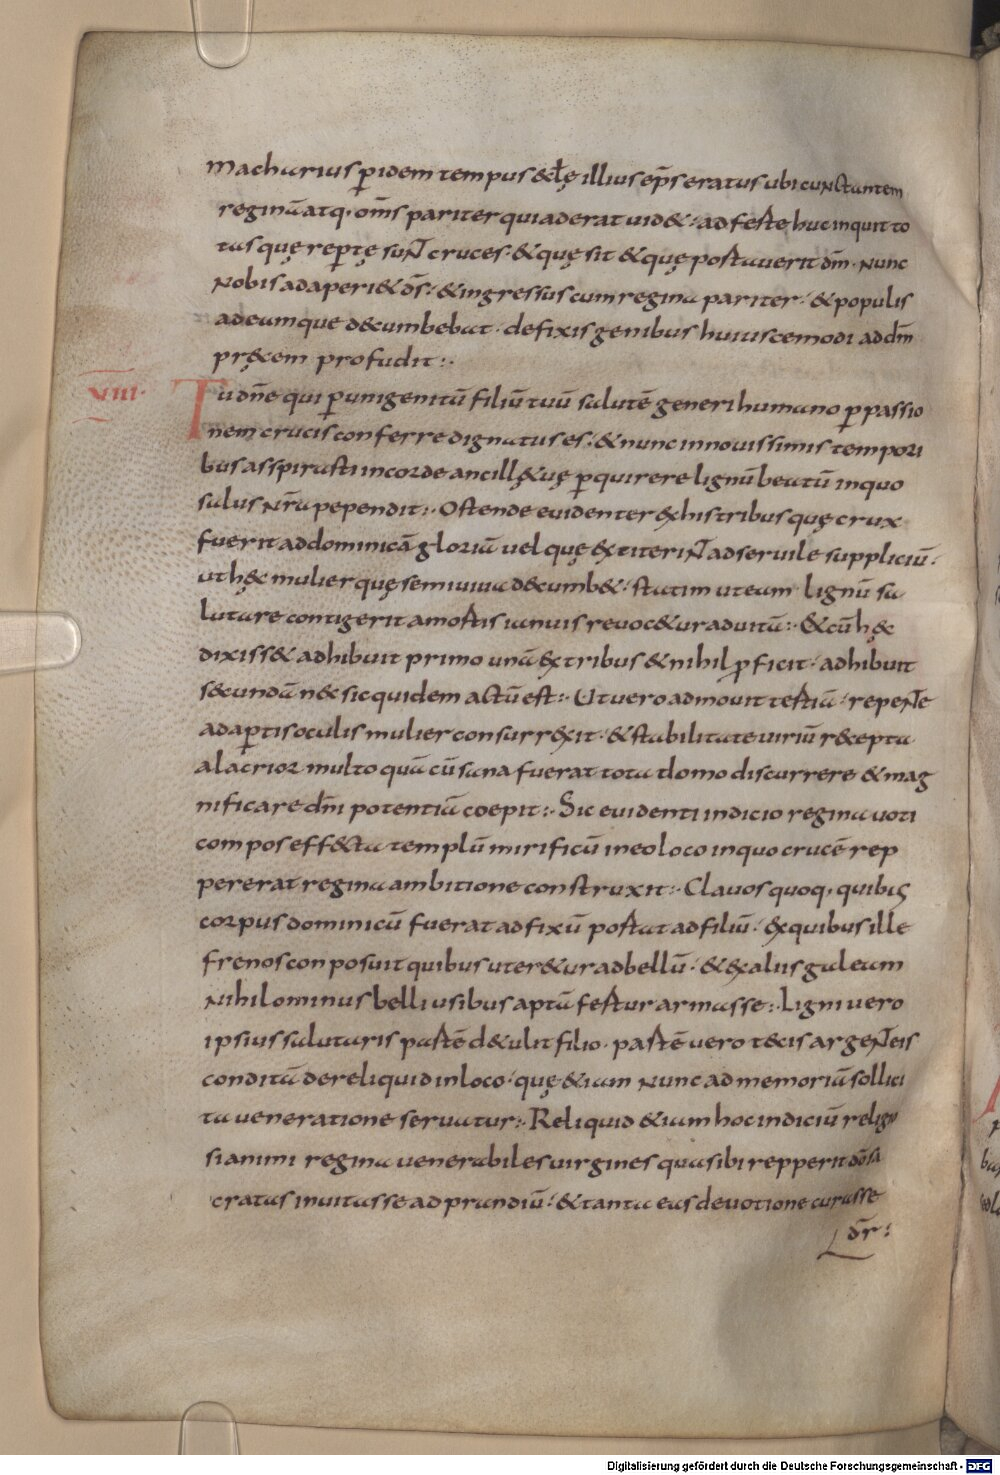 macharius p̄ idem tempus & ecłę illius ep̄s eratus ubi cunctantem
reginā atq· om̄s pariter qui aderat uid&· adferte huc inquit to
tas quę rep̄tę suNt cruces· & quę sit & quę portauerit dm̄· Nunc
Nobis adaperi& d̄s· & ingressus cum regina pariter· & populis
ad eam que decumbebat· defixis genibus huiuscemodi ad dm̄
pręcem profudit:·
VIII· Tu dn̄e qui p̄ unigenitū filiū tuū salutē generi humano p̄ passio
nem crucis conferre dignatus es· & nunc in nouissimis tempori
bus asspirasti in corde ancillę tuę p̄quirere lignū beatū in quo
salus nr̄a pependit:· Ostende euidenter ex his tribus quę crux
fuerit ad dominicā gloriā uel quę extiteriNt ad seruile suppliciū·
ut hęc mulier quę semiuiua decumb&· statim ut eam lignū sa
lutare contigerit a mortis ianuis reuoc&ur ad uitā:· & cū hęc
dixiss& adhibuit primo unā ex tribus & nihil proficit· adhibuit
secundā n& sic quidem actū est:· Ut uero admouit tertiā· repeNte
adap̄tis oculis mulier consurrexit· & stabilitate uiriū recepta
alacrior multo quā cū sana fuerat tota domo discurrere & mag
nificare dm̄i potentiā coepit:· Sic euidenti indicio regina uoti
compos effecta templū mirificū in eo loco in quo crucē rep
pererat regina ambitione construxit:· Clauos quoq· quibus
corpus dominicū fuerat adfixū portat ad filiū· ex quibus ille
frenos conposuit quibus uter&ur ad bellū· & ex aliis galeam
Nihilominus belli usibus aptā fertur armasse:· Ligni uero
ipsius salutaris partē d&ulit filio· partē uero tecis argeNteis
conditā dereliquid in loco· quę &iam Nunc ad memoriā sollici
ta ueneratione seruatur:· Reliquid &iam hoc indiciū religio
si animi regina uenerabiles uirgines quas ibi repperit dō sa
cratas inuitasse ad prandiū· & tanta eas deuotione curasse
dr̄:
Digitalisierung gefördert durch die Deutsche Forschungsgemeinschaft - DFG